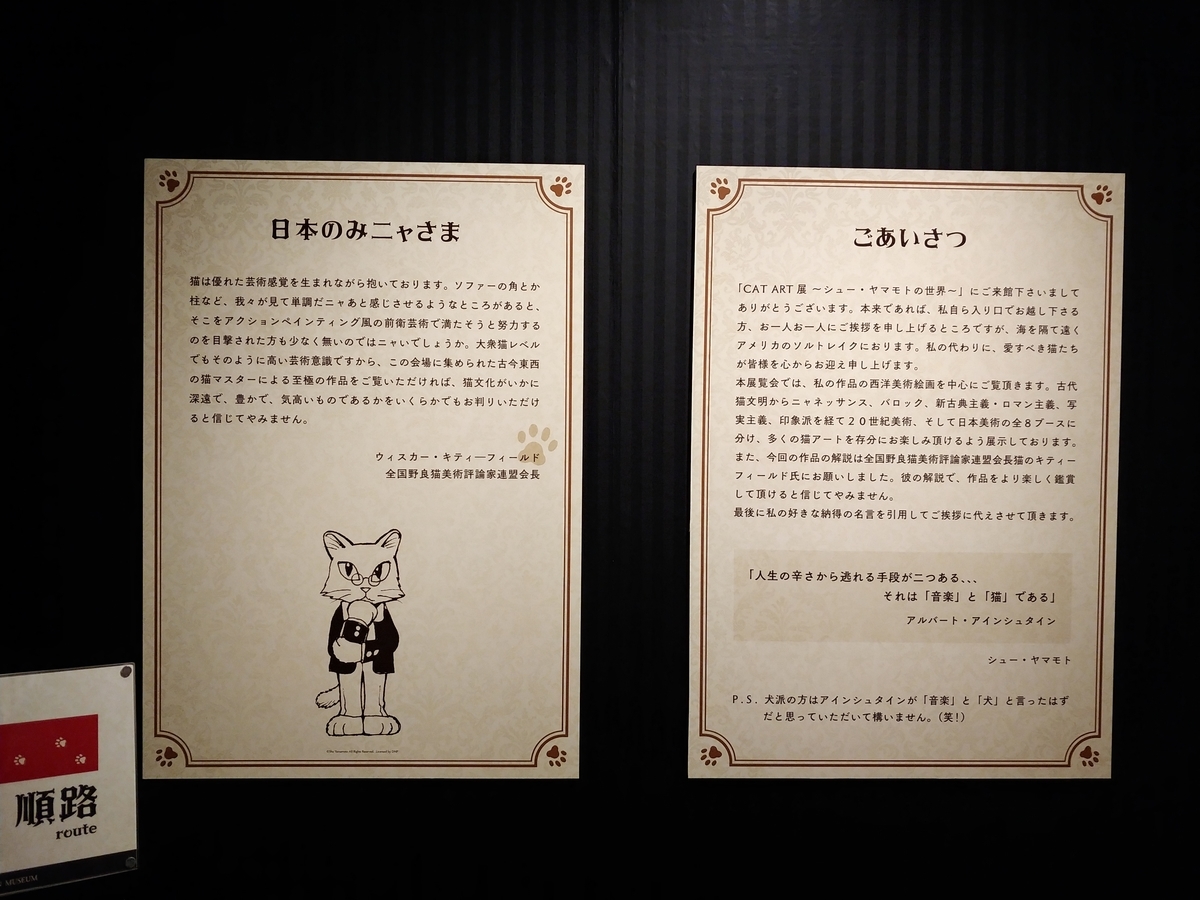 日本のみニャさま
猫は優れた芸術感覚を生まれながら抱いております。ソファーの角とか
柱など、我々が見て単調だニャあと感じさせるようなところがあると、
そこをアクションペインティング風の前衛芸術で満たそうと努力する
のを目撃された方も少なく無いのではニャいでしょうか。大衆猫レベル
でもそのように高い芸術意識ですから、この会場に集められた古今東西
の猫マスターによる至極の作品をご覧いただければ、猫文化がいかに
深遠で、豊かで、気高いものであるかをいくらかでもお判りいただけ
ると信じてやみません。
ウィスカー・キティ―フィールド
全国野良猫美術評論家連盟会長
ごあいさつ
「CAT ART 展 ～シュー・ヤマモトの世界～」にご来館下さいまして
ありがとうございます。本来であれば、私自ら入り口でお越し下さる
方、お一人お一人にご挨拶を申し上げるところですが、海を隔て遠く
アメリカのソルトレイクにおります。私の代わりに、愛すべき猫たち
が皆様を心からお迎え申し上げます。
本展覧会では、私の作品の西洋美術絵画を中心にご覧頂きます。古代
猫文明からニャネッサンス、バロック、新古典主義・ロマン主義、写
実主義、印象派を経て２０世紀美術、そして日本美術の全８ブースに
分け、多くの猫アートを存分にお楽しみ頂けるよう展示しております。
また、今回の作品の解説は全国野良猫美術評論家連盟会長猫のキティー
フィールド氏にお願いしました。彼の解説で、作品をより楽しく鑑賞
して頂けると信じてやみません。
最後に私の好きな納得の名言を引用してご挨拶に代えさせて頂きます。
「人生の辛さから逃れる手段が二つある、、、
それは「音楽」と「猫」である」
アルバート・アインシュタイン
シュー・ヤマモト
P.S. 犬派の方はアインシュタインが「音楽」と「犬」と言ったはず
だと思っていただいて構いません。（笑！）
順路
route
MUSEUM